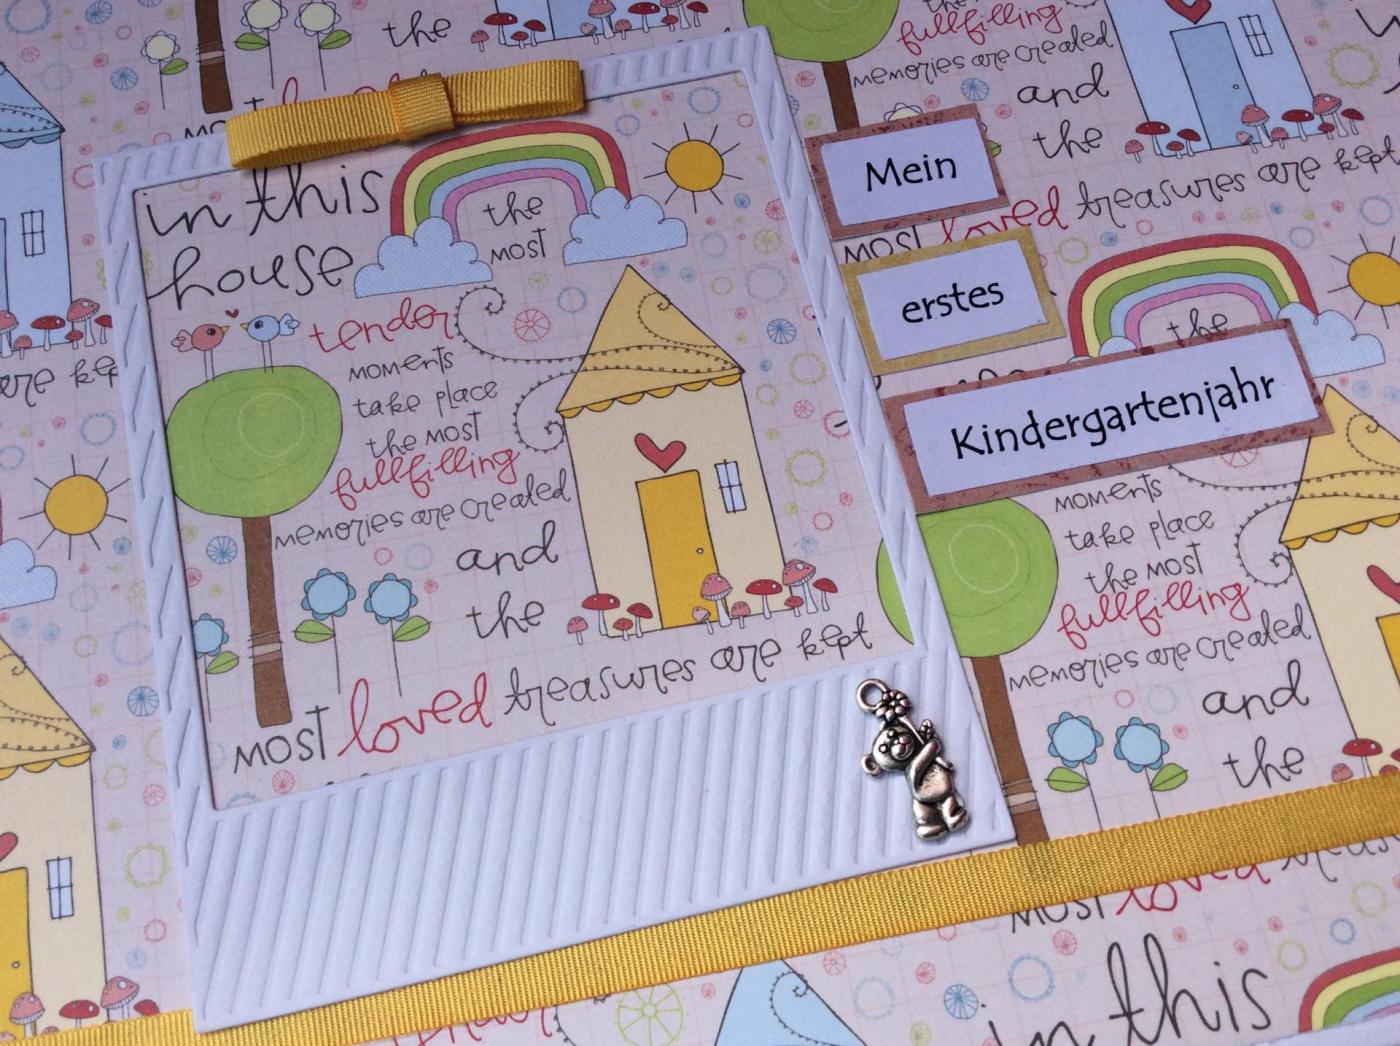 the
the
fullfilling
memories are created
and
the
most loved treasures are kept
are kep
in this
house
the
most
tender
moments
take place
the most
fullfilling
memories are created
and
the
most loved treasures are kept
Mein
erstes
Kindergartenjahr
the
moments
take place
the most
fullfilling
memories are created
and
the
most loved
in this